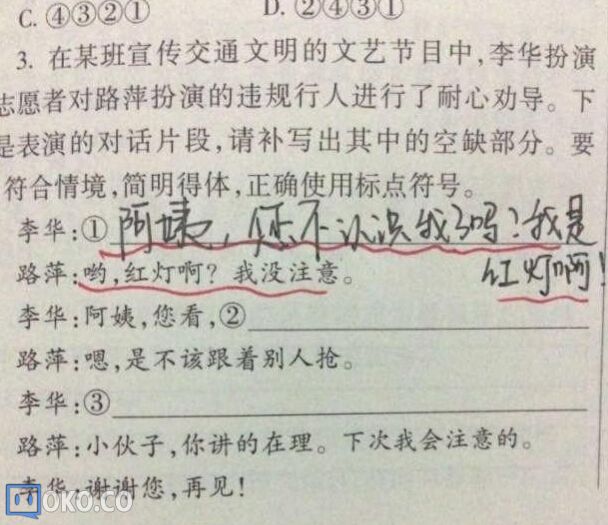 C. ④③②① D. ②④③①
3. 在某班宣传交通文明的文艺节目中,李华扮演
志愿者对路萍扮演的违规行人进行了耐心劝导。下
是表演的对话片段,请补写出其中的空缺部分。要
符合情境,简明得体,正确使用标点符号。
李华:①阿姨,您不认识我了吗?我是
红灯啊!
路萍:哟,红灯啊?我没注意。
李华:阿姨,您看,②
路萍:嗯,是不该跟着别人抢。
李华:③
路萍:小伙子,你讲的在理。下次我会注意的。
李华:谢谢您,再见!
MOKO.CO